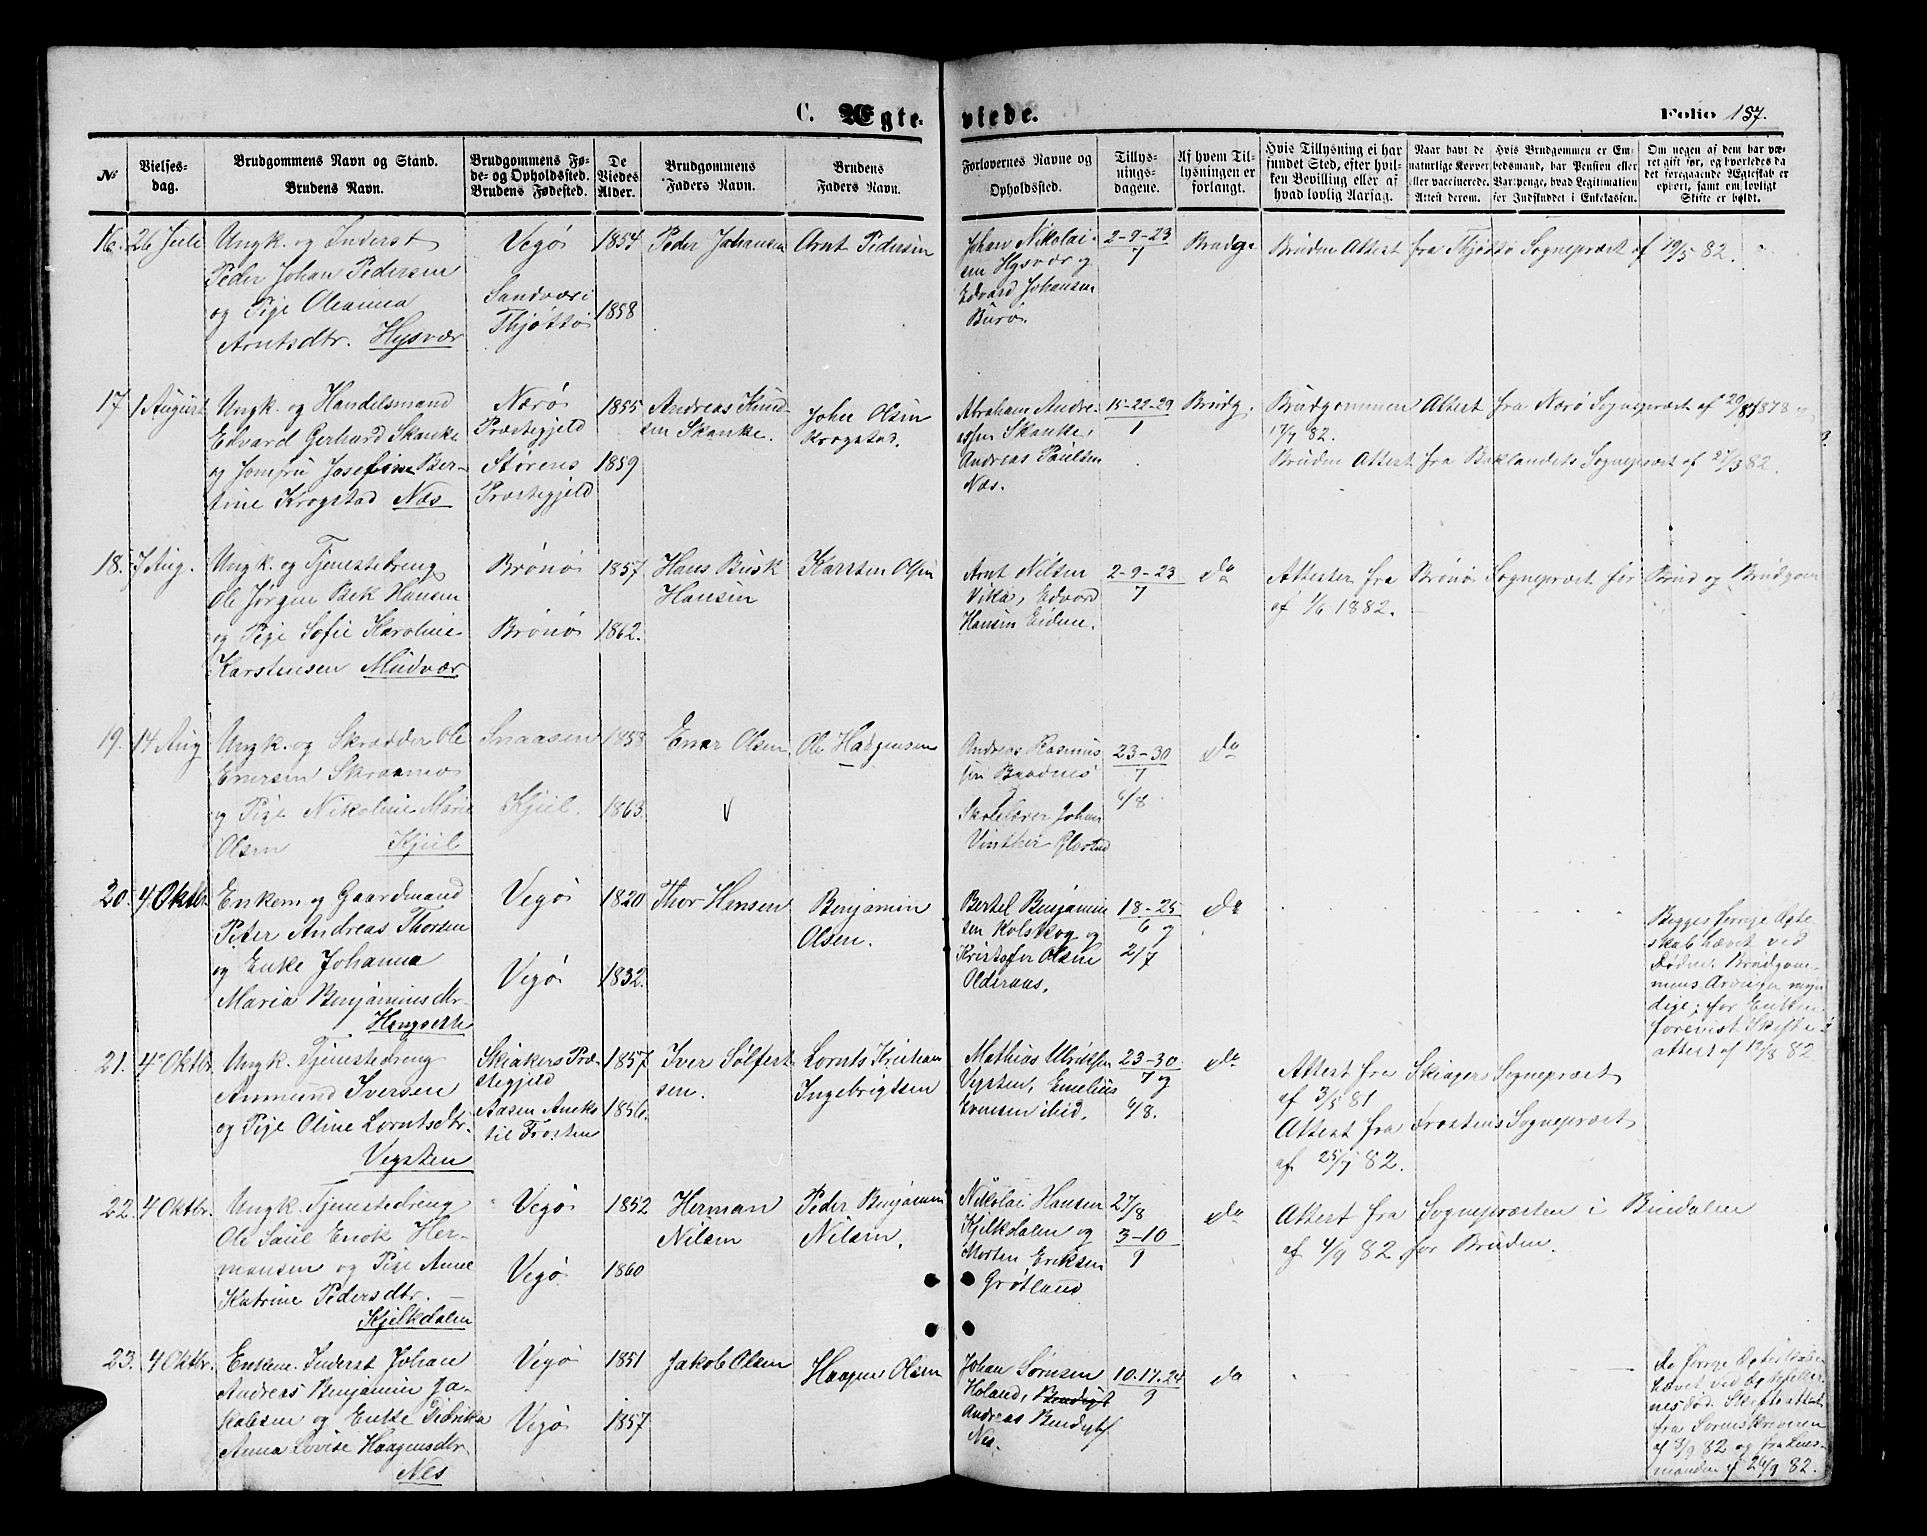 C. Ægte- viede. Folio 157.
№
Vielses-
dag.
Brudgommens Navn og Stand.
Brudens Navn.
Brudgommens Fø-
de- og Opholdssted.
Brudens Fødested.
De
Viedes
Alder.
Brudgommens
Faders Navn.
Brudens
Faders Navn.
Forlovernes Navne og
Opholdssted.
Tillys-
nings-
dagene.
Af hvem Til-
lysningen er
forlangt.
Hvis Tillysning ei har
fundet Sted, efter hvil-
ken Bevilling eller af
hvad lovlig Aarsag.
Naar havt de
naturlige Kopper
eller vaccinerede.
Attest derom.
Hvis Brudgommen er Em-
bedsmand, har Pension eller
Vartpenge, hvad Legitimation
for Indskuddet i Enkekassen.
Om nogen af dem har væ-
ret gift før, og hvorledes da
det foregaaende Ægteskab er
ophørt, samt om lovligt
Skifte er holdt.
16. 26 Juli
Ungk. og Inderst
Peder Johan Pedersen
og Pige Oleanna
Arntsdtr. Hysvær
Vegø
Sandvær i
Thjøttø
1854
1858
Peder Johansen
Arnt Pedersen
Johan Nikolai-
sen Hysvær og
Edvard Johansen
Burø.
2-9-23
7
Brudg.
Bruden Attest fra Thjøttø Sognepræst af 19/5 82.
17 1 August
Ungk. og Handelsmand
Edvard Gerhard Skanke
og Jomfru Josefine Ber-
tine Krogstad Næs
Nærø
Præstegjeld
Størens
Præstegjeld
1855
1859
Andreas Knud-
sen Skanke.
John Olsen
Krogstad.
Abraham Andre-
assen Skanke,
Andreas Paulsen
Næs.
15-22-29
1
Brudg.
Brudgommen Attest fra Nærø Sognepræst af
17/7 82.
Bruden Attest fra Baklandets Sognepræst af 27/3 82.
18. 7 Aug.
Ungk. og Tjenestedreng
Ole Jørgen Bek Hansen
og Pige Sofie Karoline
Karstensen Mudvær
Brønø
Brønø
1857
1862.
Hans Busk
Hansen
Karsten Olsen
Arnt Nilsen
Vikla, Edvard
Hansen Eidem.
2-9-23
7
do
Attester fra Brønø Sognepræst for Brud og Brudgom
af 1/6 1882.
19. 14 Aug
Ungk. og Skrædder Ole
Enersen Skraamo
og Pige Nikoline Marie
Olsen Kjul
Snaasen
Kjul.
1858
1863.
Ener Olsen
Ole Haagensen
Andreas Rasmus
sen Baadnes
Skolelærer Johan
Vinther Flostad
23-30
7
6/8
do
20. 4 Oktbr.
Enkem. og Gaardmand
Peter Andreas Thorsen
og Enke Johanna
Maria Benjaminsdtr.
Hongseth
Vegø
Vegø
1820
1832.
Thor Hensen
Benjamin
Olsen.
Bertel Benjamin
sen Kolskog og
Kristofer Olsen
Olderaas.
18-25
6 og
2/7
do
Begges forrige Ægte
skab hævet ved
Døden. Brudgom-
mens Arvinger myn
dige; for Enken
forevist Skifte-
attest af 12/8 82
21. 4 Oktbr
Ungk. Tjenestedreng
Anmund Iversen
og Pige Oline Lorntsdtr.
Vegsten
Skiakers Præ-
stegjeld
Aasen Aneks
til Frosten
1857
1856.
Iver Sølfest
sen.
Lornts Kristian
Ingebrigtsen
Mathias Ulriksen
Vegsten, Emelius
Evensen ibid.
23-30
7 og
6/8.
do
Attest fra Skiagers Sognepræst
af 3/5 81
Attest fra Frostens Sognepræst
af 25/7 82.
22. 4 Oktbr.
Ungk. Tjenestedreng
Ole Saul Enok Her-
mansen og Pige Anne
Katrine Pedersdtr.
Kjelkdalen
Vegø
Vegø
1852
1860
Herman
Nilsen
Peder Benjamin
Nilsen.
Nikolai Hansen
Kjelkdalen og
Morten Eriksen
Grøtland
27/8
3-10
9
do
Attest fra Sognepræsten i Bindalen
af 4/9 82 for Bruden.
23. 4 Oktbr.
Enkem. Inderst Johan
Andreas Benjamin Ja-
kobsen og Enke Didrika
Anna Lovise Haagensdtr.
Nes
Vegø
Vegø
1851
1857
Jakob Olsen
Haagen Olsen
Johan Sørnsen
Holand, Bendigt
Andreas Bendigts
Nes.
10.17.24
9
do
De forrige Ægteskaber
hævet ved Ægtefæller-
nes Død. Skifteattest
fra Sorenskriveren
af 3/9 82 og fra Lens-
manden af 26/9 82.